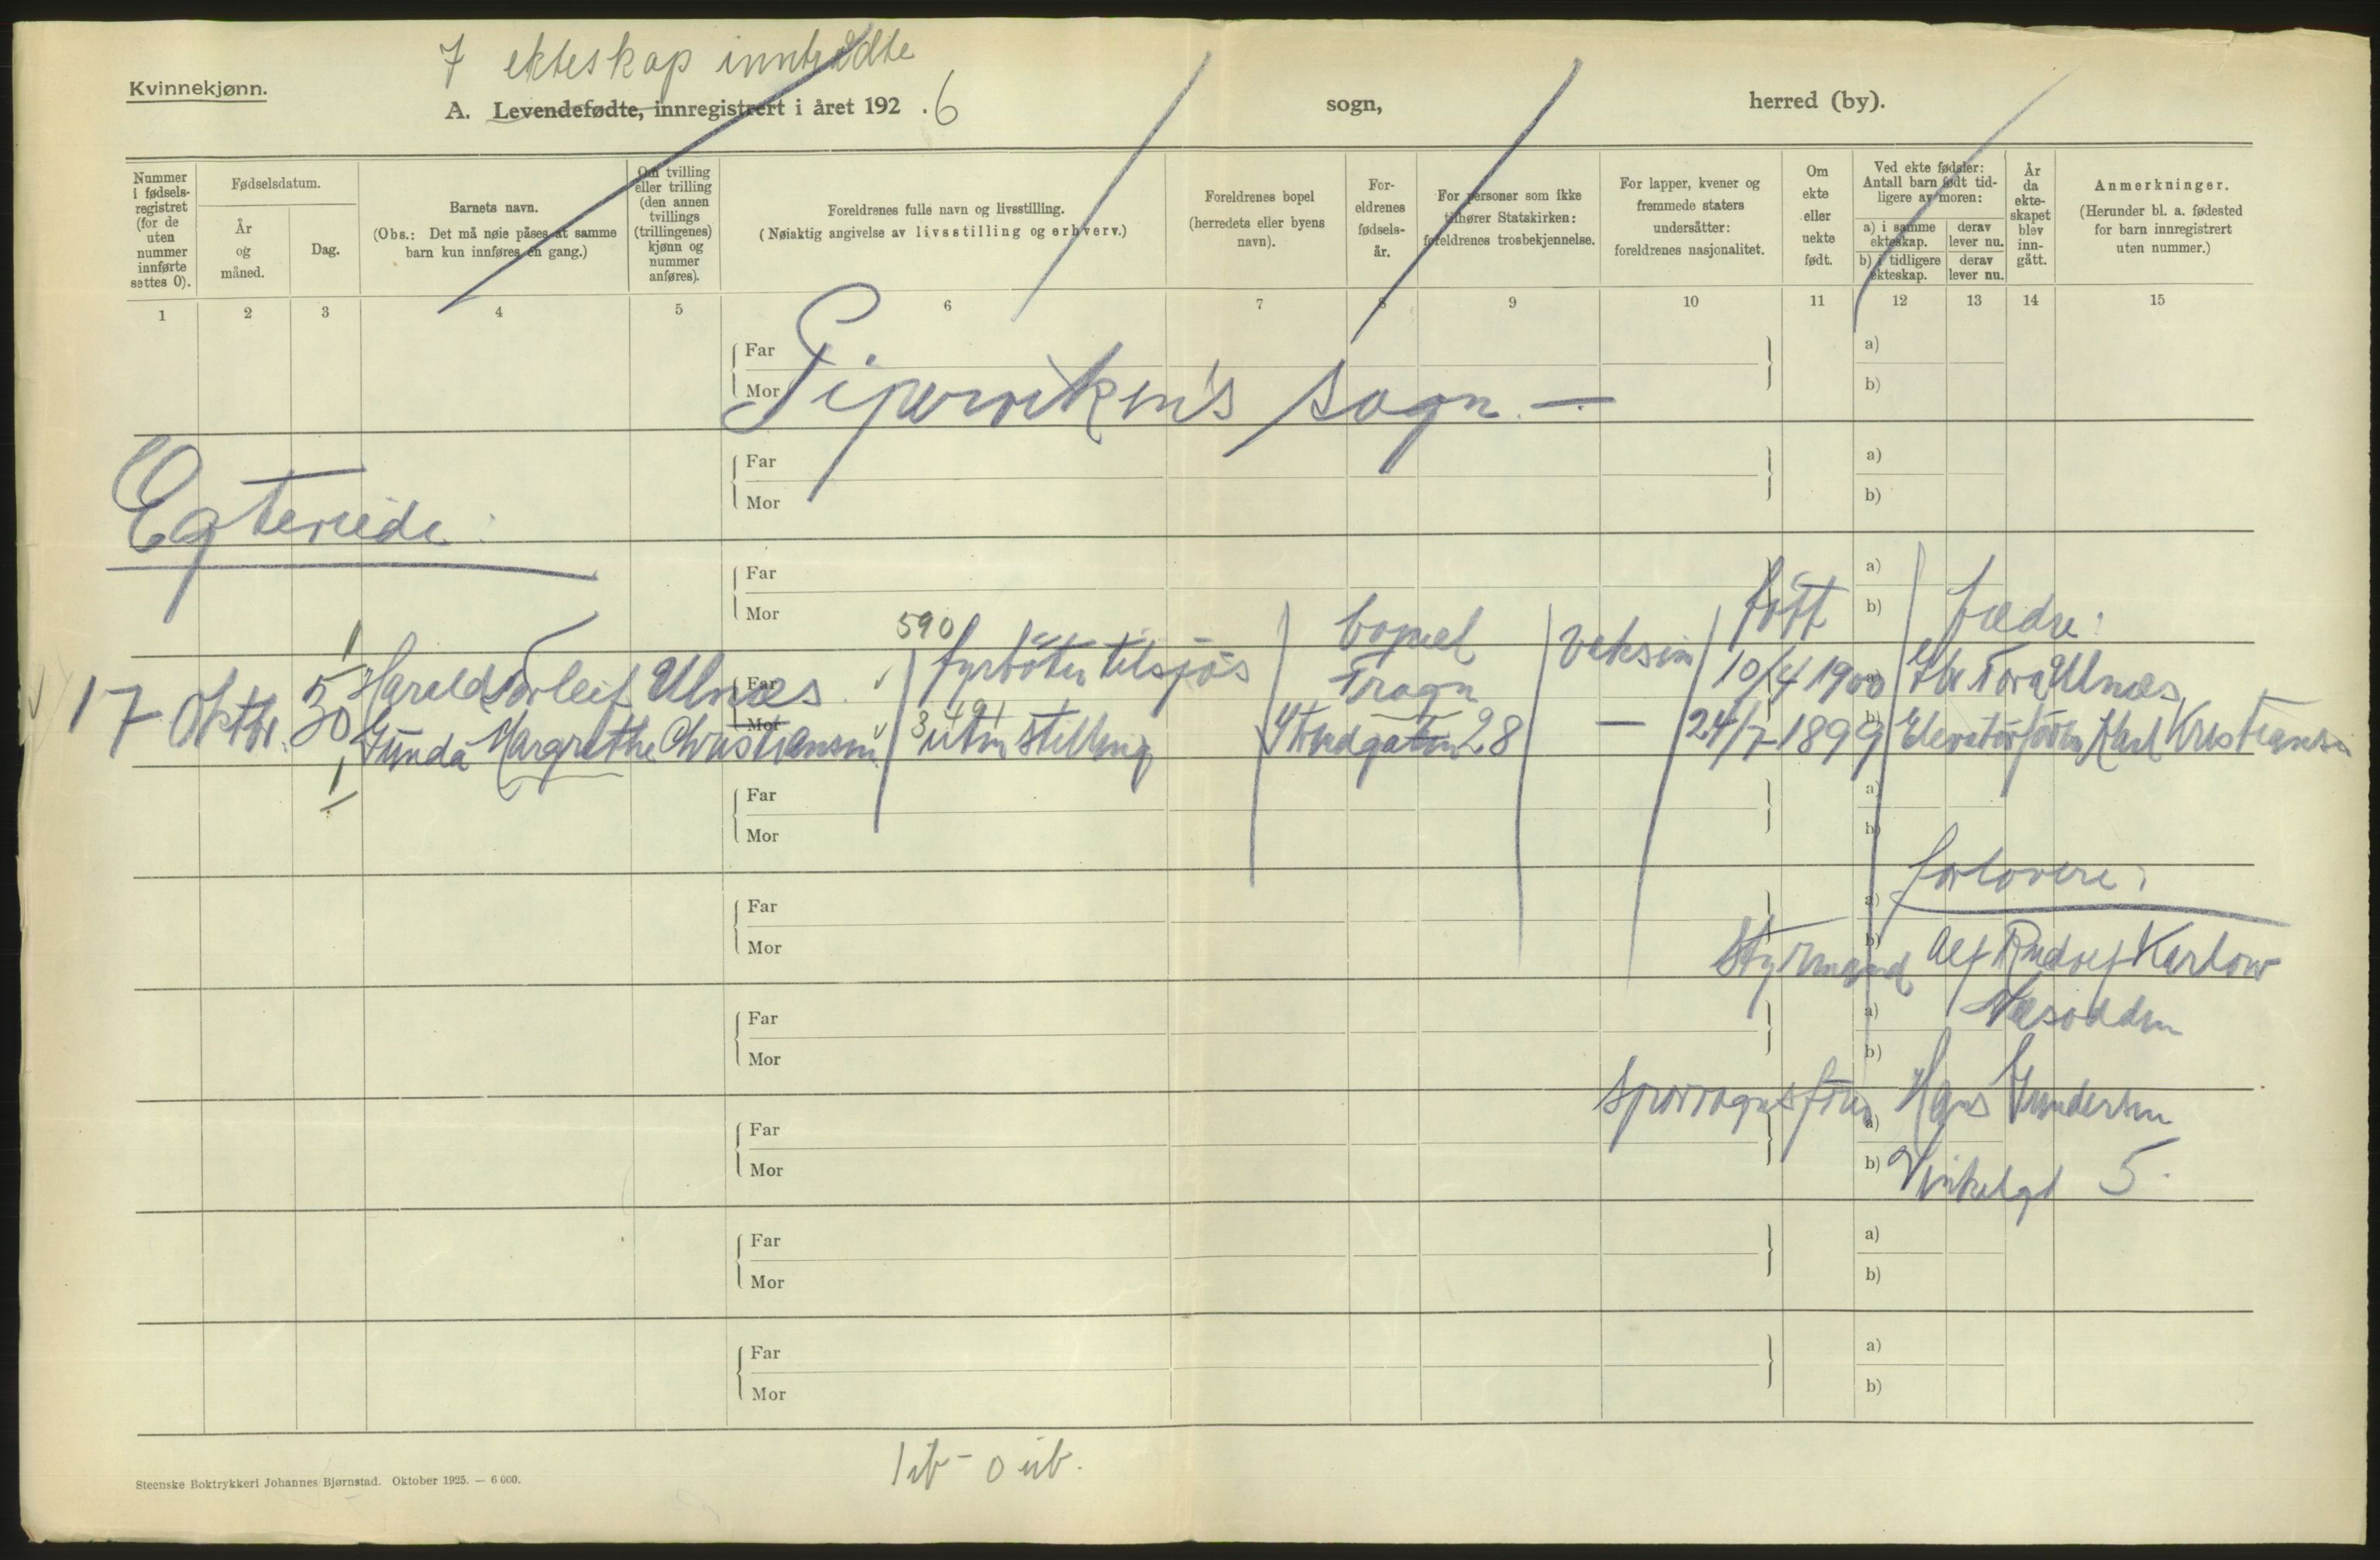 7 ekteskap inntrådte
Kvinnekjønn.
A. Levendefødte, innregistrert i året 192 . 6 sogn, herred (by).
Nummer i fødsels-registret (for de uten nummer innførte settes 0).
Fødselsdatum.
År og måned.
Dag.
Barnets navn.
(Obs.: Det må nøie påses at samme barn kun innføres én gang.)
Om tvilling eller trilling (den annen tvillings (trillingenes) kjønn og nummer anføres).
Foreldrenes fulle navn og livsstilling.
(Nøiaktig angivelse av livsstilling og erhverv.)
Foreldrenes bopel (herredets eller byens navn).
For-eldrenes fødsels-år.
For personer som ikke tilhører Statskirken: foreldrenes trosbekjennelse.
For lapper, kvener og fremmede staters undersåtter: foreldrenes nasjonalitet.
Om ekte eller uekte født.
Ved ekte fødsler: Antall barn født tid-ligere av moren:
a) i samme ekteskap.
derav lever nu.
b) i tidligere ekteskap.
derav lever nu.
År da ekte-skapet blev inn-gått.
Anmerkninger.
(Herunder bl. a. fødested for barn innregistrert uten nummer.)
1 2 3 4 5 6 7 8 9 10 11 12 13 14 15
Far a)
Mor b)
Piperviken's sogn. —
Far a)
Mor b)
Egteviede:
Far a)
Mor b)
590 bopæl vaksin født fædre:
17 Oktbr. 5 Harald Torleif Ulnæs fyrböter tilsjös Frogn 10/4 1900 Tora Ulnæs
Far a)
Mor b)
30 Gunda Margrethe Christiansen uten stilling Strudgaten 28 — 24/7 1899 Elevatorförer Karl Kristiansen
Far a)
Mor b)
forlovere:
Far a)
Mor b)
Styrmand Alf Rudolf Karlow
Næsodden
Far a)
Mor b)
Sporvognsfører Hans Gundersen
Far a)
Mor b)
Vinkelgt 5.
Far a)
Mor b)
Far a)
Mor b)
1 ib - 0 ub.
Steenske Boktrykkeri Johannes Bjørnstad. Oktober 1925. — 6 000.